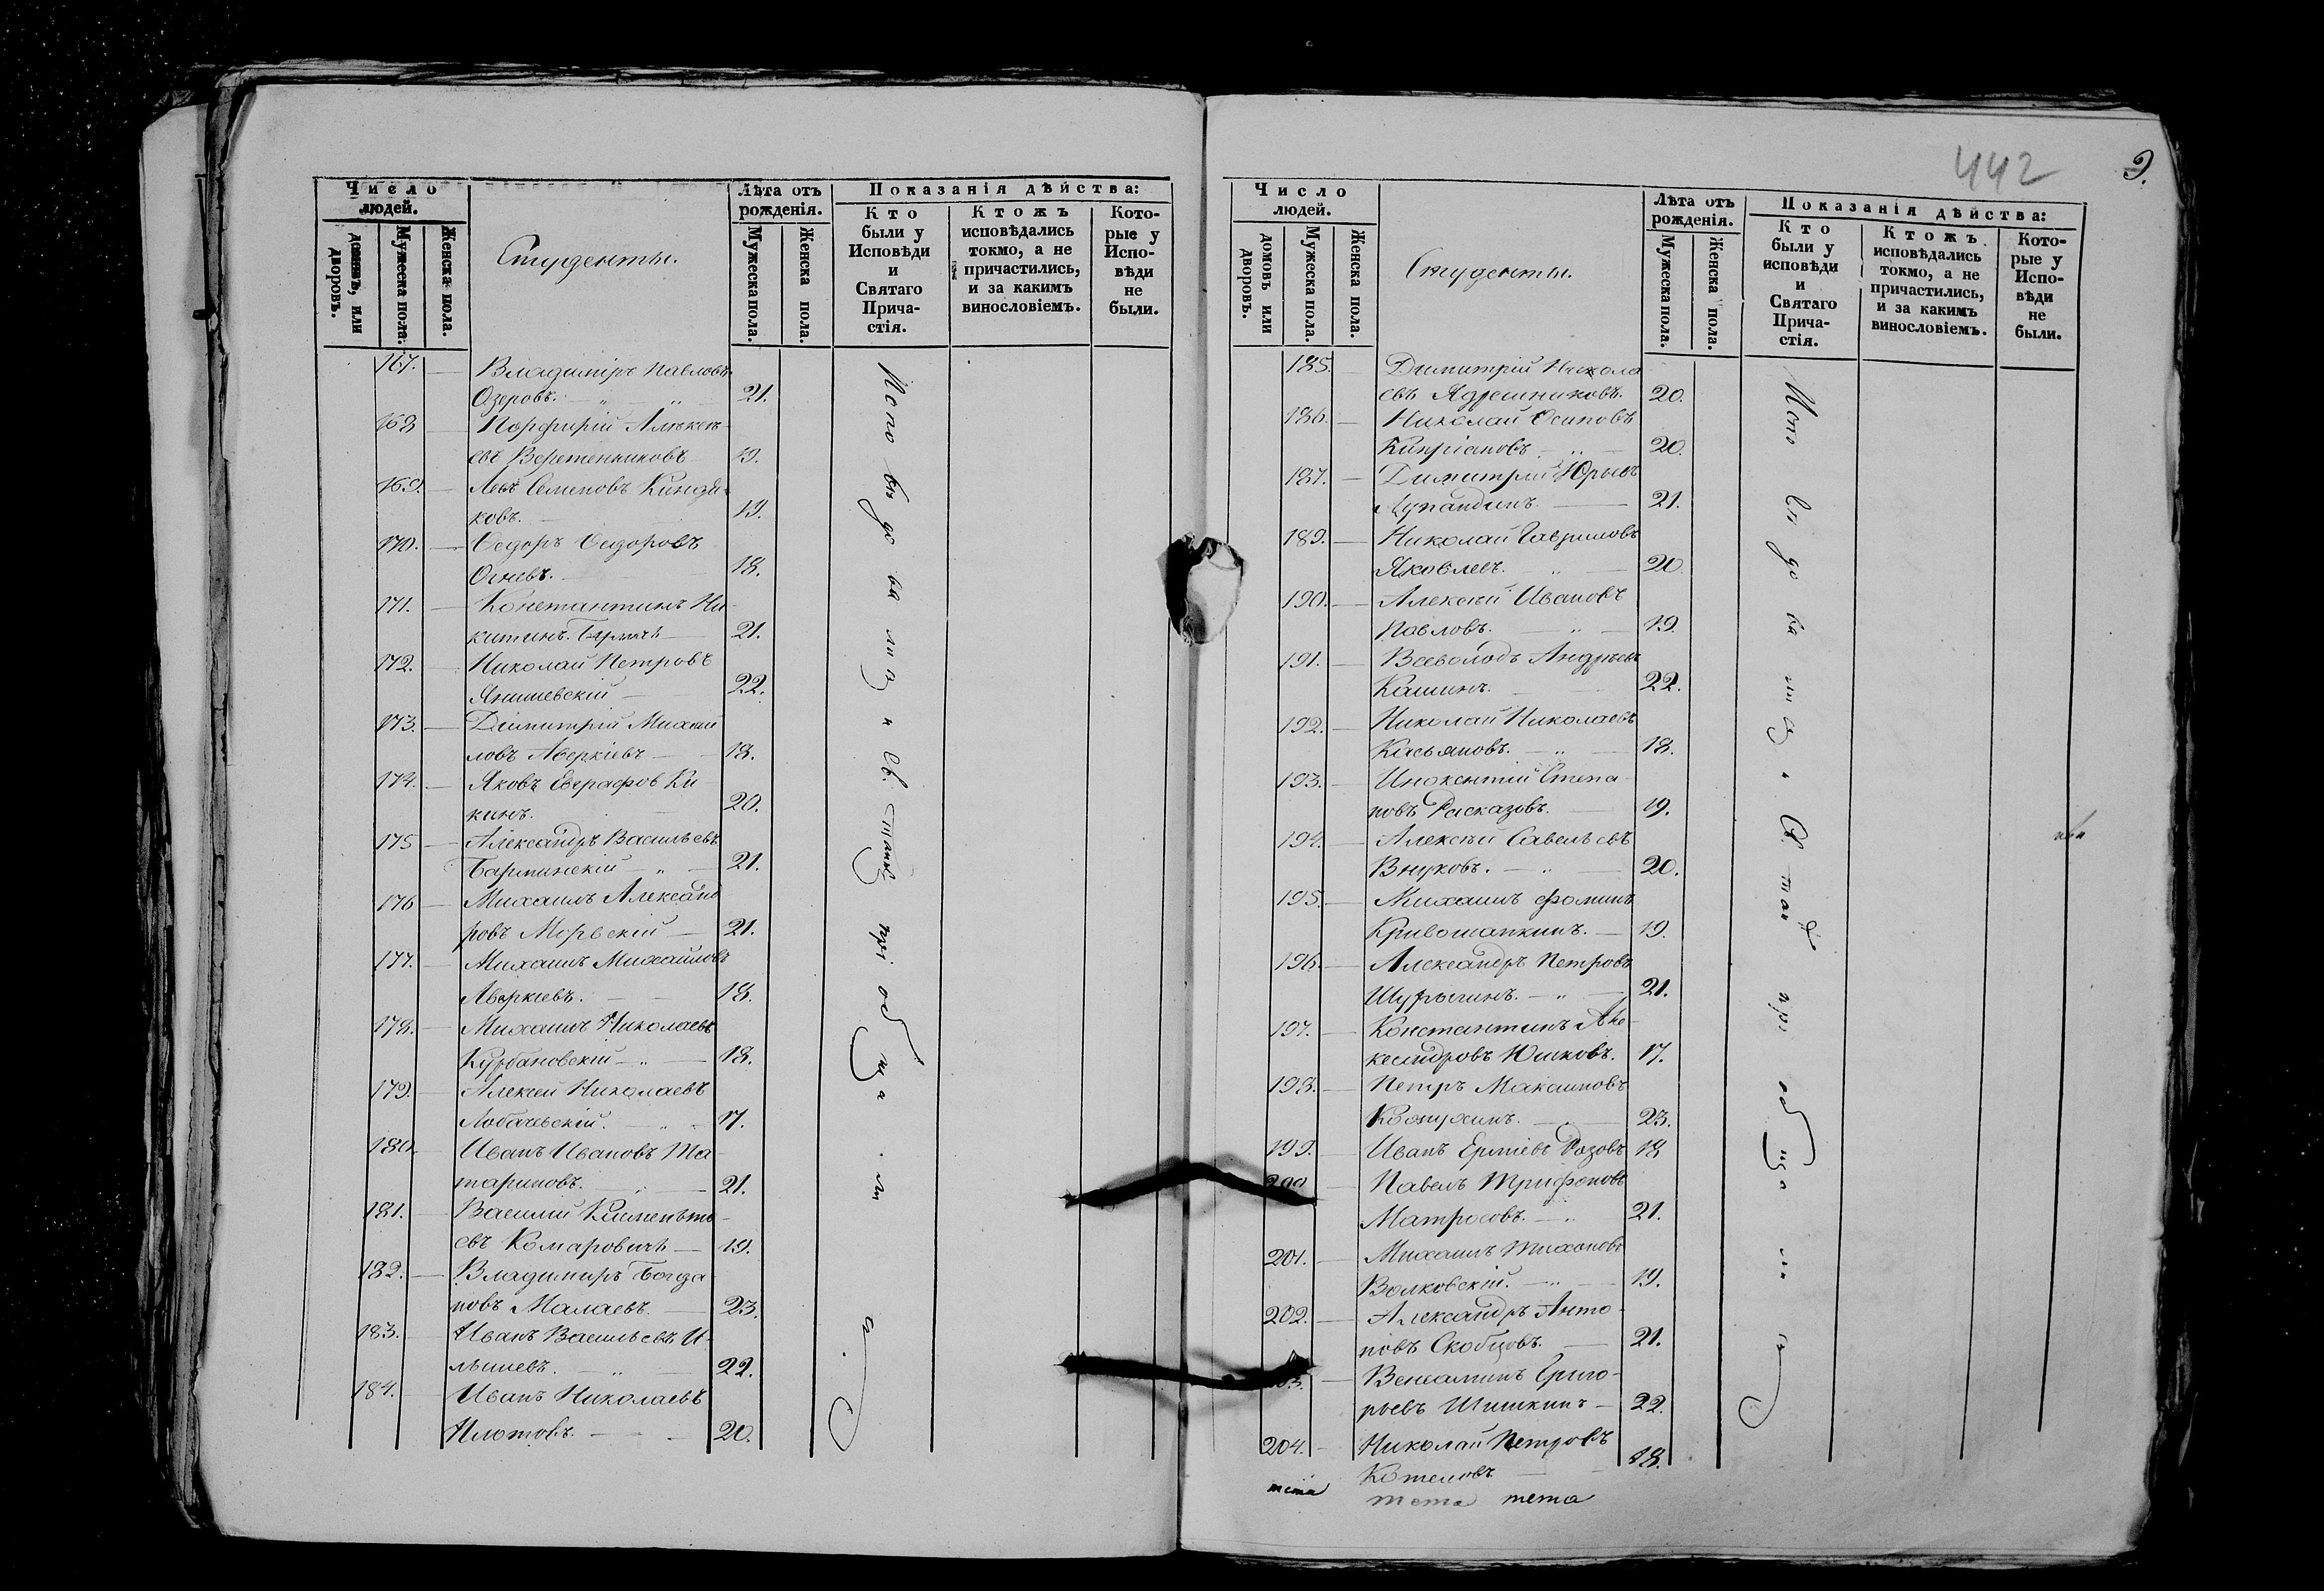 Число людей.
домовъ, или дворовъ.
Мужеска пола.
Женска пола.
Студенты.
Лѣта отъ рожденія.
Мужеска пола.
Женска пола.
Показанія дѣйства:
Кто были у Исповѣди и Святаго Прича-стія.
Ктожъ исповѣдались токмо, а не причастились, и за какимъ винословіемъ.
Кото-рые у Испо-вѣди не были.
167. Владиміръ Павловъ
Озеровъ. 21.
168 Порфирій Алексѣ-
евъ Веретенниковъ 19.
169. Левъ Семеновъ Кинdя-
ковъ. 19.
170. Ѳедоръ Ѳедоровъ
Огневъ. 18.
171. Константинъ Ни-
китинъ 21.
172. Николай Петровъ
Янишевскій 22.
173. Димитрій Михай
ловъ Аверкіевъ 18.
174. Яковъ Евграфов Ки-
кинъ. 20.
175 Александръ Васильевъ
Барминскій 21.
176 Михаилъ Александ
ровъ 21.
177. Михаилъ Михайловъ
Аверкіевъ. 18.
178. Михаилъ Николаевъ
Курбановскій 18.
179. Алексѣй Николаевъ
Лобачевскій. 17.
180. Иванъ Ивановъ Та-
тариновъ. 21.
181. Василій Клементь-
евъ Комаровичъ 19.
182. Владиміръ Богда
новъ Малаевъ. 23.
183. Иванъ Васильевъ И-
22.
184. Иванъ Николаевъ
20.
Исповѣдовались и Св. таинъ пріобщались.
442
9.
Число людей.
домовъ или дворовъ.
Мужеска пола.
Женска пола.
Студенты.
Лѣта отъ рожденія.
Мужеска пола.
Женска пола.
Показанія дѣйства:
Кто были у исповѣди и Святаго Прича-стія.
Ктожъ исповѣдались токмо, а не причастились, и за какимъ винословіемъ.
Кото-рые у Испо-вѣди не были.
185. Димитрій Никола
евъ Ядрешниковъ. 20.
186. Николай Осиповъ
Кипріановъ 20.
187. Димитрій Юрьевъ
Лупандинъ 21.
189. Николай Гавриловъ
Яковлевъ. 20
190. Алексѣй Ивановъ
Павловъ. 19
191. Всеволодъ Андреевъ
Кашинъ. 22.
192. Николай Николаевъ
Касьяновъ. 18.
193. Инокентій Степа-
новъ Расказовъ. 19.
194. Алексѣй Савельевъ
Внуковъ. 20.
195. Михаилъ Фоминъ
Кривошапкинъ. 19.
196. Александръ Петровъ
Шурыгинъ. 21.
197. Константинъ Але-
ксандровъ Юшковъ. 17.
198. Петръ Макаимовъ
Кожухинъ. 23.
199. Иванъ Ерміевъ Розовъ 18
200 Павелъ Трифоновъ
Матросовъ. 21.
201. Михаилъ Тихоновъ
Волковскій. 19.
202. Александръ Анто-
новъ Скобцовъ. 21.
Веніаминъ Григо-
рьевъ Шишкинъ 22.
204. Николай Петровъ
Котеловъ 18.
Исповѣдовались и Св. таинъ пріобщались
тета
тета тета